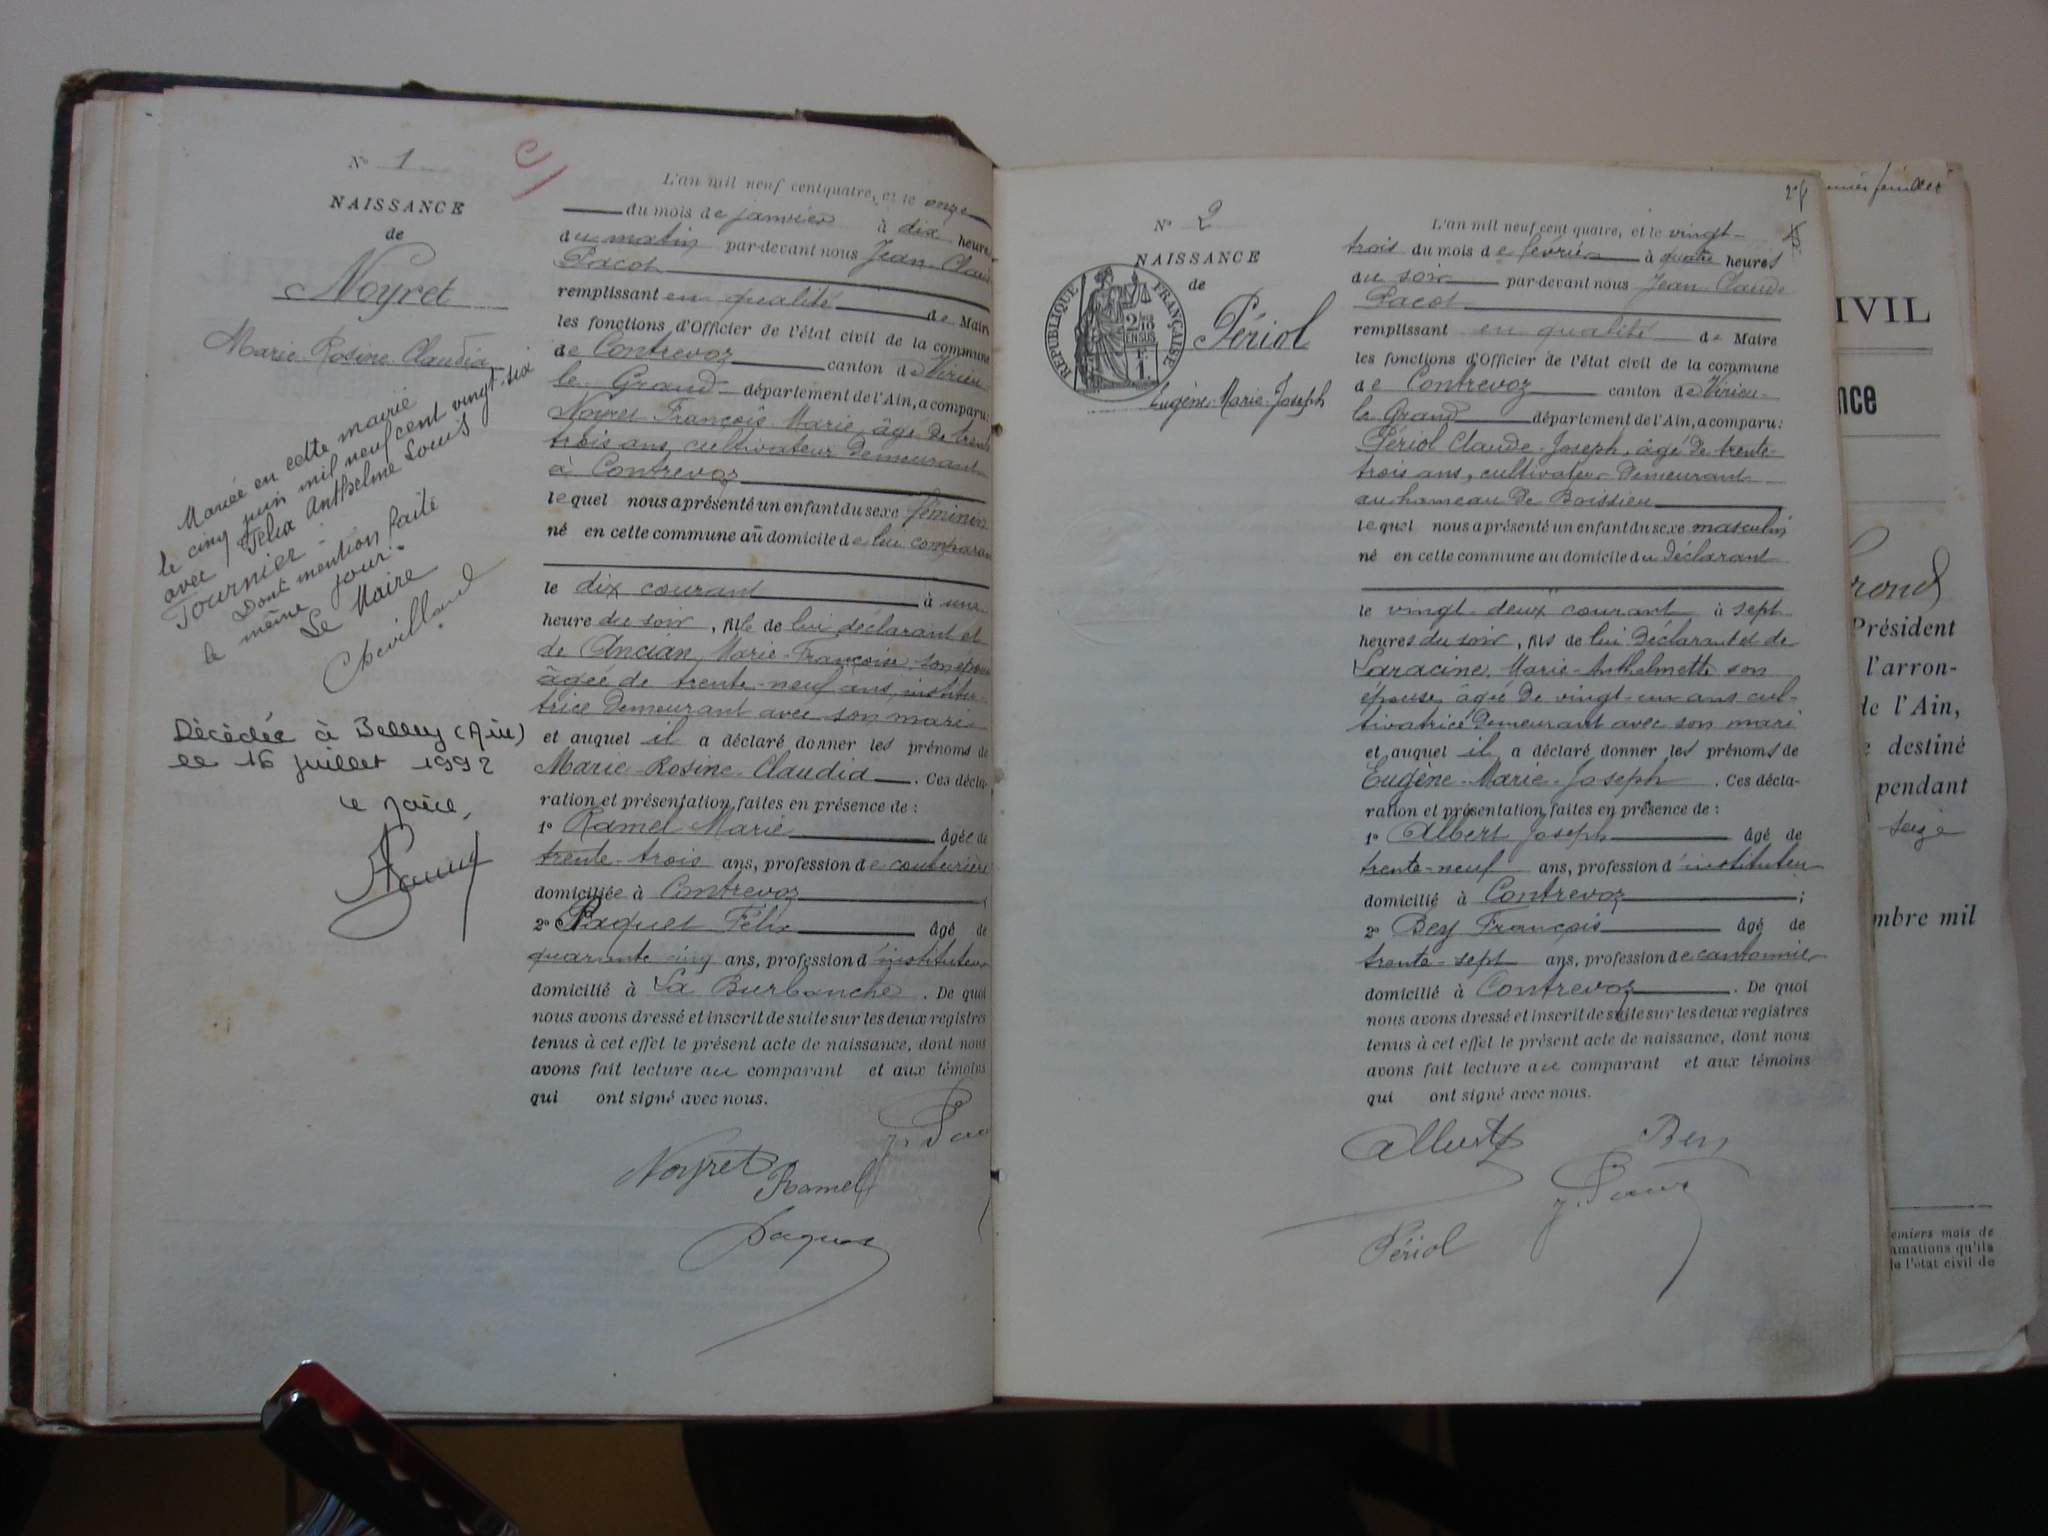 N° 1
NAISSANCE
de
Noyret
Marie-Rosine-Claudia
Mariée en cette mairie
le cinq juin mil neuf cent vingt-six
avec Félix Anthelme Louis
Tournier -
Dont mention faite
le même jour.
Le Maire
Chevilland
Décédée à Belley (Ain)
le 16 juillet 1992
Le Maire,
L'an mil neuf cent quatre, et le onze
du mois de janvier à dix heures
du matin par-devant nous Jean-Claude
Pacot
remplissant en qualité de Maire
les fonctions d'Officier de l'état civil de la commune
de Contrevoz canton de Virieu
le Grand département de l'Ain, a comparu:
Noyret François Marie, âgé de trente
trois ans, cultivateur demeurant
à Contrevoz
lequel nous a présenté un enfant du sexe féminin
né en cette commune au domicile de lui comparant
le dix courant à une
heure du soir, fille de lui déclarant et
de Ancian, Marie-Françoise son épouse
âgée de trente-neuf ans, institu-
trice demeurant avec son mari
et auquel il a déclaré donner les prénoms de
Marie-Rosine-Claudia. Ces décla-
ration et présentation faites en présence de :
1° Ramel Marie âgée de
trente-trois ans, profession de couturière
domiciliée à Contrevoz
2° Paquet Félix âgé de
quarante cinq ans, profession d'instituteur
domicilié à La Burbanche. De quoi
nous avons dressé et inscrit de suite sur les deux registres
tenus à cet effet le présent acte de naissance, dont nous
avons fait lecture au comparant et aux témoins
qui ont signé avec nous.
Noyret Ramel
Paquet
N° 2
NAISSANCE
de
RÉPUBLIQUE FRANÇAISE
2/10
EN SUS
1 F.
Périol
Eugène-Marie-Joseph
L'an mil neuf cent quatre, et le vingt-
trois du mois de février à quatre heures
du soir par-devant nous Jean Claude
Pacot
remplissant en qualité de Maire
les fonctions d'Officier de l'état civil de la commune
de Contrevoz canton de Virieu-
le Grand département de l'Ain, a comparu:
Périol Claude-Joseph, âgé de trente-
trois ans, cultivateur demeurant
au hameau de Boissieu
lequel nous a présenté un enfant du sexe masculin
né en cette commune au domicile du déclarant
le vingt-deux courant à sept
heures du soir, fils de lui déclarant et de
Laracine, Marie-Anthelmette son
épouse, âgée de vingt-un ans cul-
tivatrice demeurant avec son mari
et auquel il a déclaré donner les prénoms de
Eugène-Marie-Joseph. Ces décla-
ration et présentation faites en présence de :
1° Albert Joseph âgé de
trente-neuf ans, profession d'instituteur
domicilié à Contrevoz;
2° Bey François âgé de
trente-sept ans, profession de cantonnier
domicilié à Contrevoz. De quoi
nous avons dressé et inscrit de suite sur les deux registres
tenus à cet effet le présent acte de naissance, dont nous
avons fait lecture au comparant et aux témoins
qui ont signé avec nous.
Albert Bey
J. Pacot
Périol
IVIL
nce
Président
l'arron-
de l'Ain,
destiné
pendant
seize
mbre mil
emiers mois de
amations qu'ils
de l'état civil de